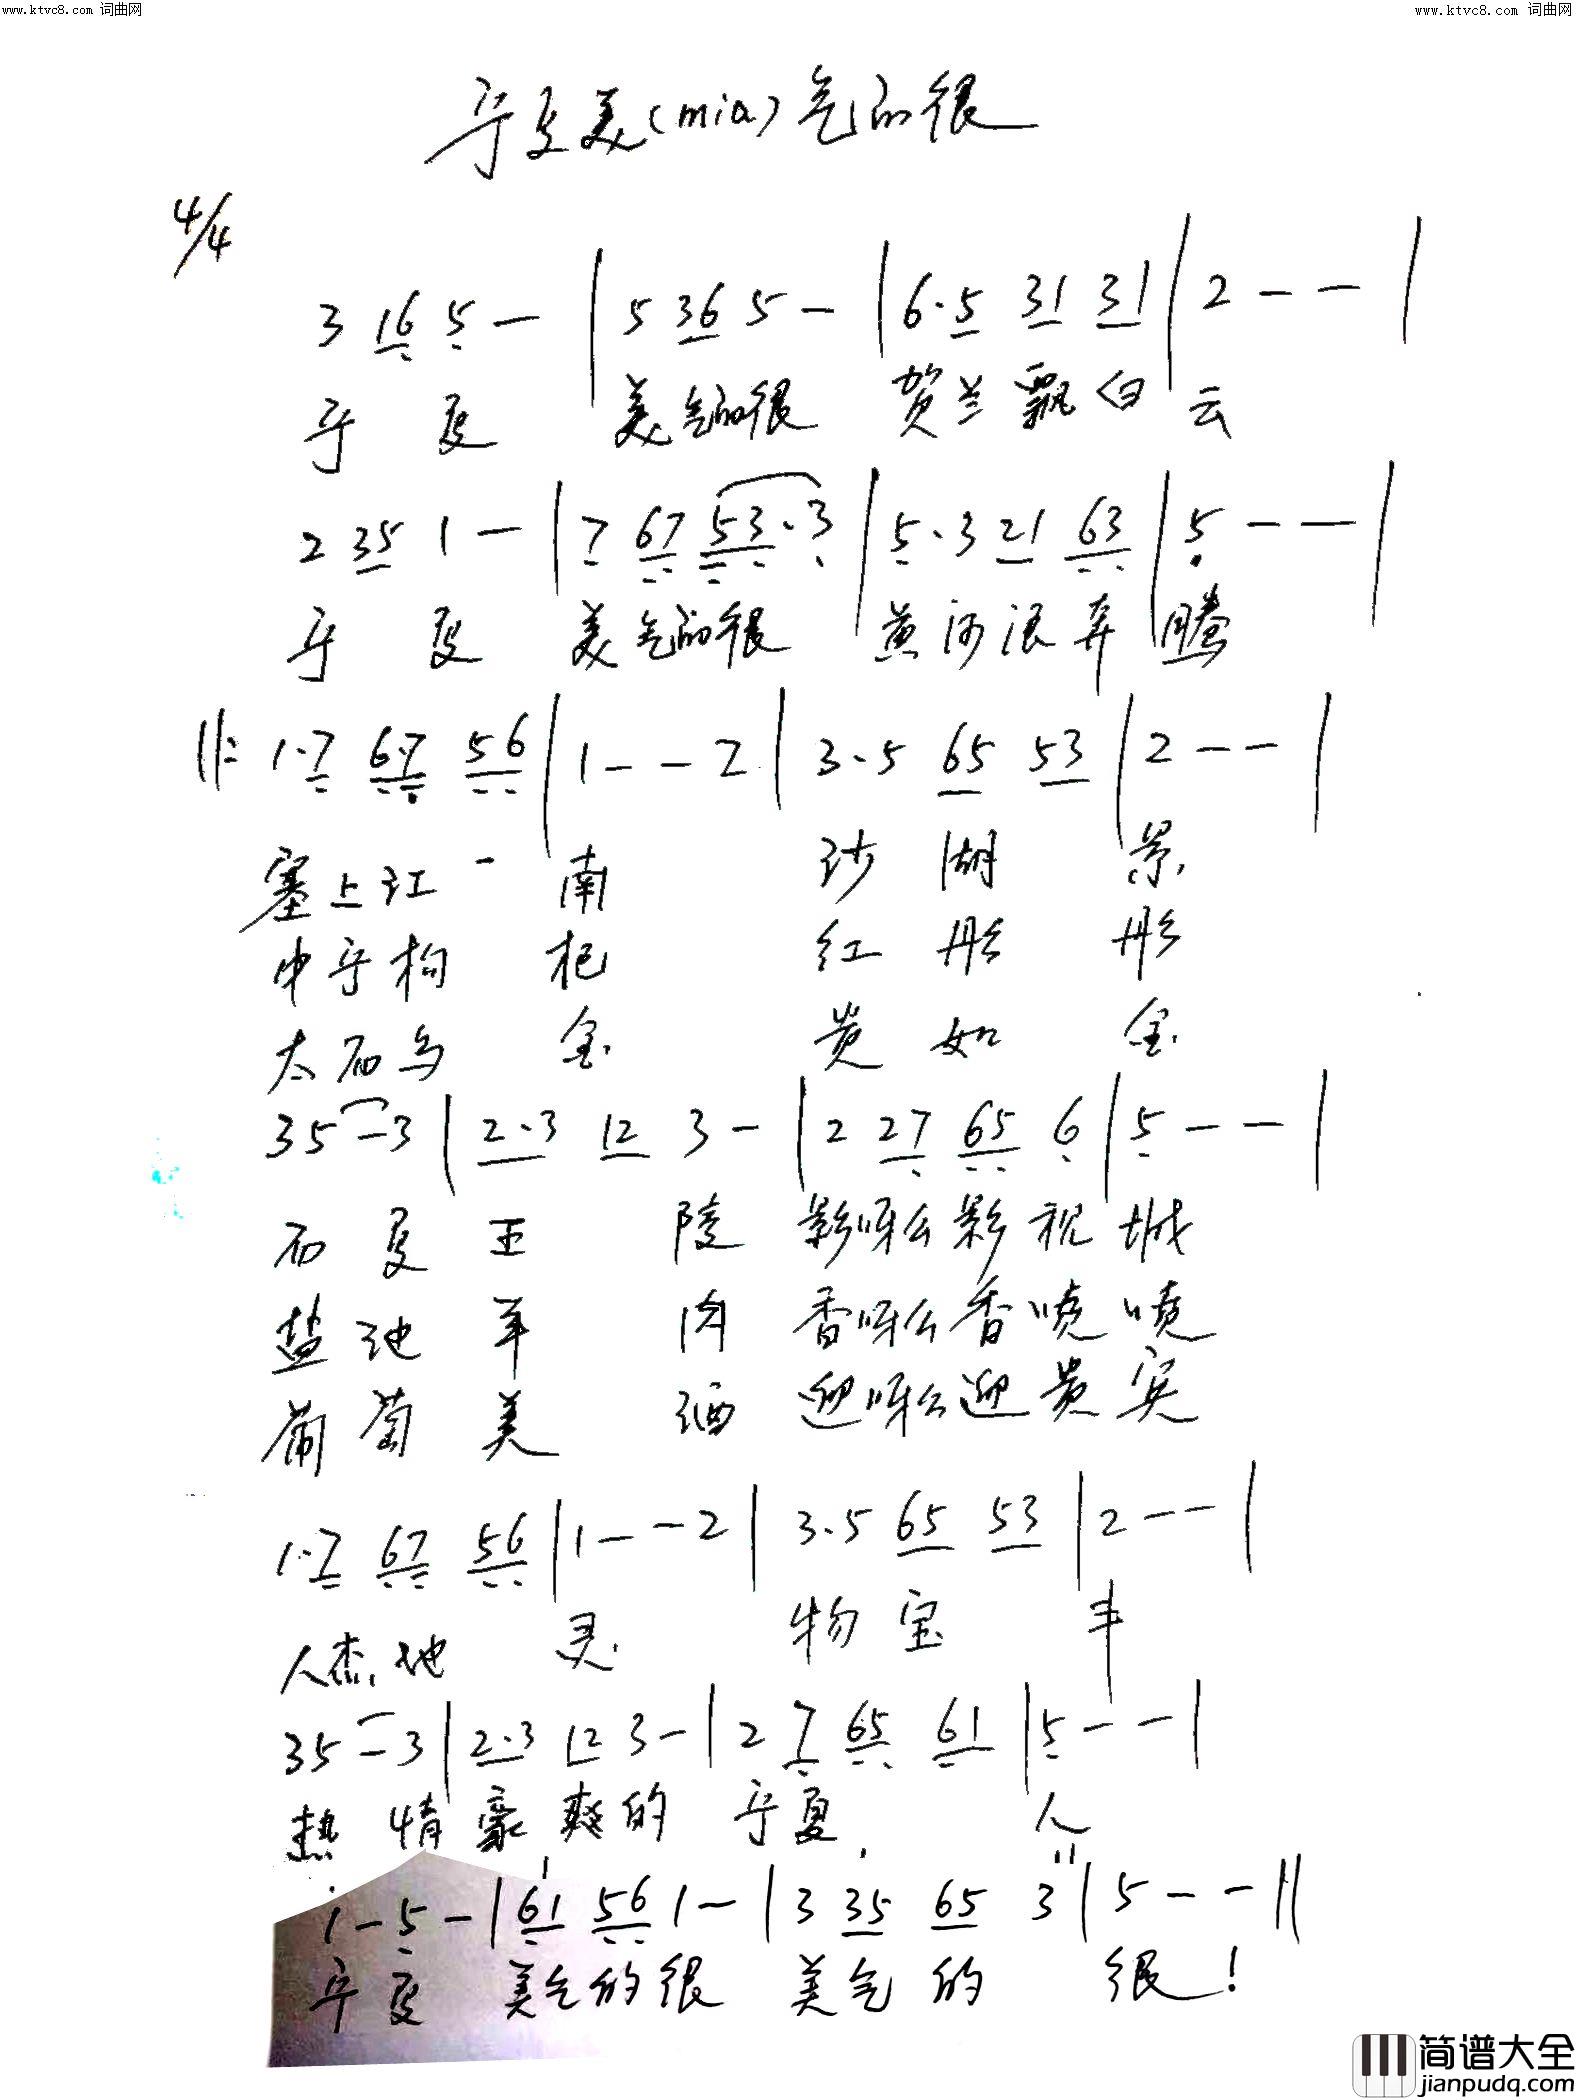 www.ktvc8.com 词曲网 www.ktvc8.com 词曲网
宁夏美(mia)气的很
4/4
3 16 5 — | 5 36 5 — | 6·5 31 31 | 2 — — |
宁 夏 美气的很 贺兰飘白云
2 35 1 — | 7 67 53·3 | 5·3 21 63 | 5 — — |
宁 夏 美气的很 黄河浪奔腾
||: 1·7 67 56 | 1 — — 2 | 3·5 65 53 | 2 — — |
塞上江 南 沙 湖 景
中宁枸 杞 红 彤 彤
太西乌 金 贵 如 金
35 — 3 | 2·3 12 3 — | 2 27 65 6 | 5 — — |
西 夏 王 陵 影呀么影视城
盐 池 羊 肉 香呀么香喷喷
葡 萄 美 酒 迎呀么迎贵宾
1·7 67 56 | 1 — — 2 | 3·5 65 53 | 2 — — |
人杰地 灵 物 宝 丰
35 — 3 | 2·3 12 3 — | 2 7 65 61 | 5 — — |
热 情 豪 爽 的 宁 夏 人
1 — 5 — | 61 56 1 — | 3 35 65 3 | 5 — — ||
宁 夏 美气的很 美气的 很!
简谱大全
jianpudq.com